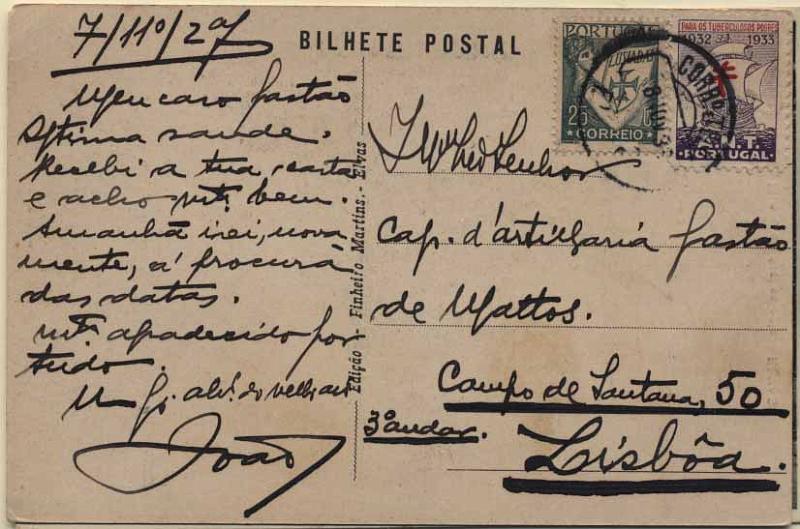 7/11º/2ª f
Meu caro Gastão
Optima saude.
Recebi a tua carta
e acho mtº bem.
Amanhã irei, nova
mente, á procura
das datas.
mtº agradecido por
tudo.
Um gr. abº. do velho
João
BILHETE POSTAL
Edição - Pinheiro Martins. - Elvas
PORTUGAL
LUSIADAS
25 C.
CORREIO
PARA OS TUBERCULOSOS POBRES
1932 1933
A.N.T.
PORTUGAL
Senhor
Cap. d'artilharia Gastão
de Mattos.
Campo de Santana, 50
3º andar.
Lisbôa.